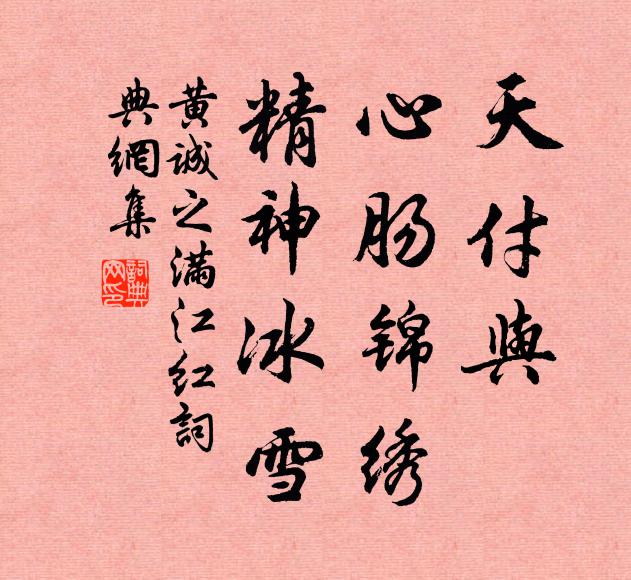 天付與
心肠锦绣
精神冰雪
黄诚之满江红詞
典網集
詞典
网印